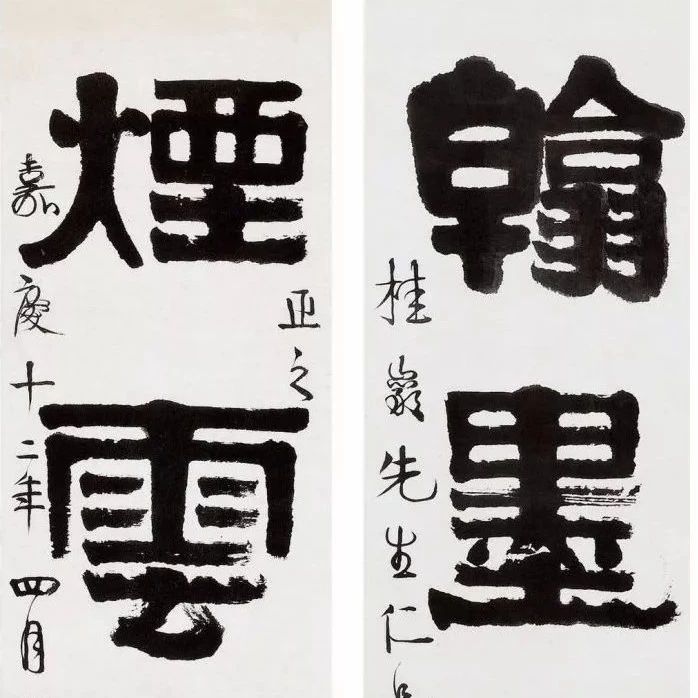 翰墨
桂巖先生仁
正之
煙雲
嘉慶十二年四月